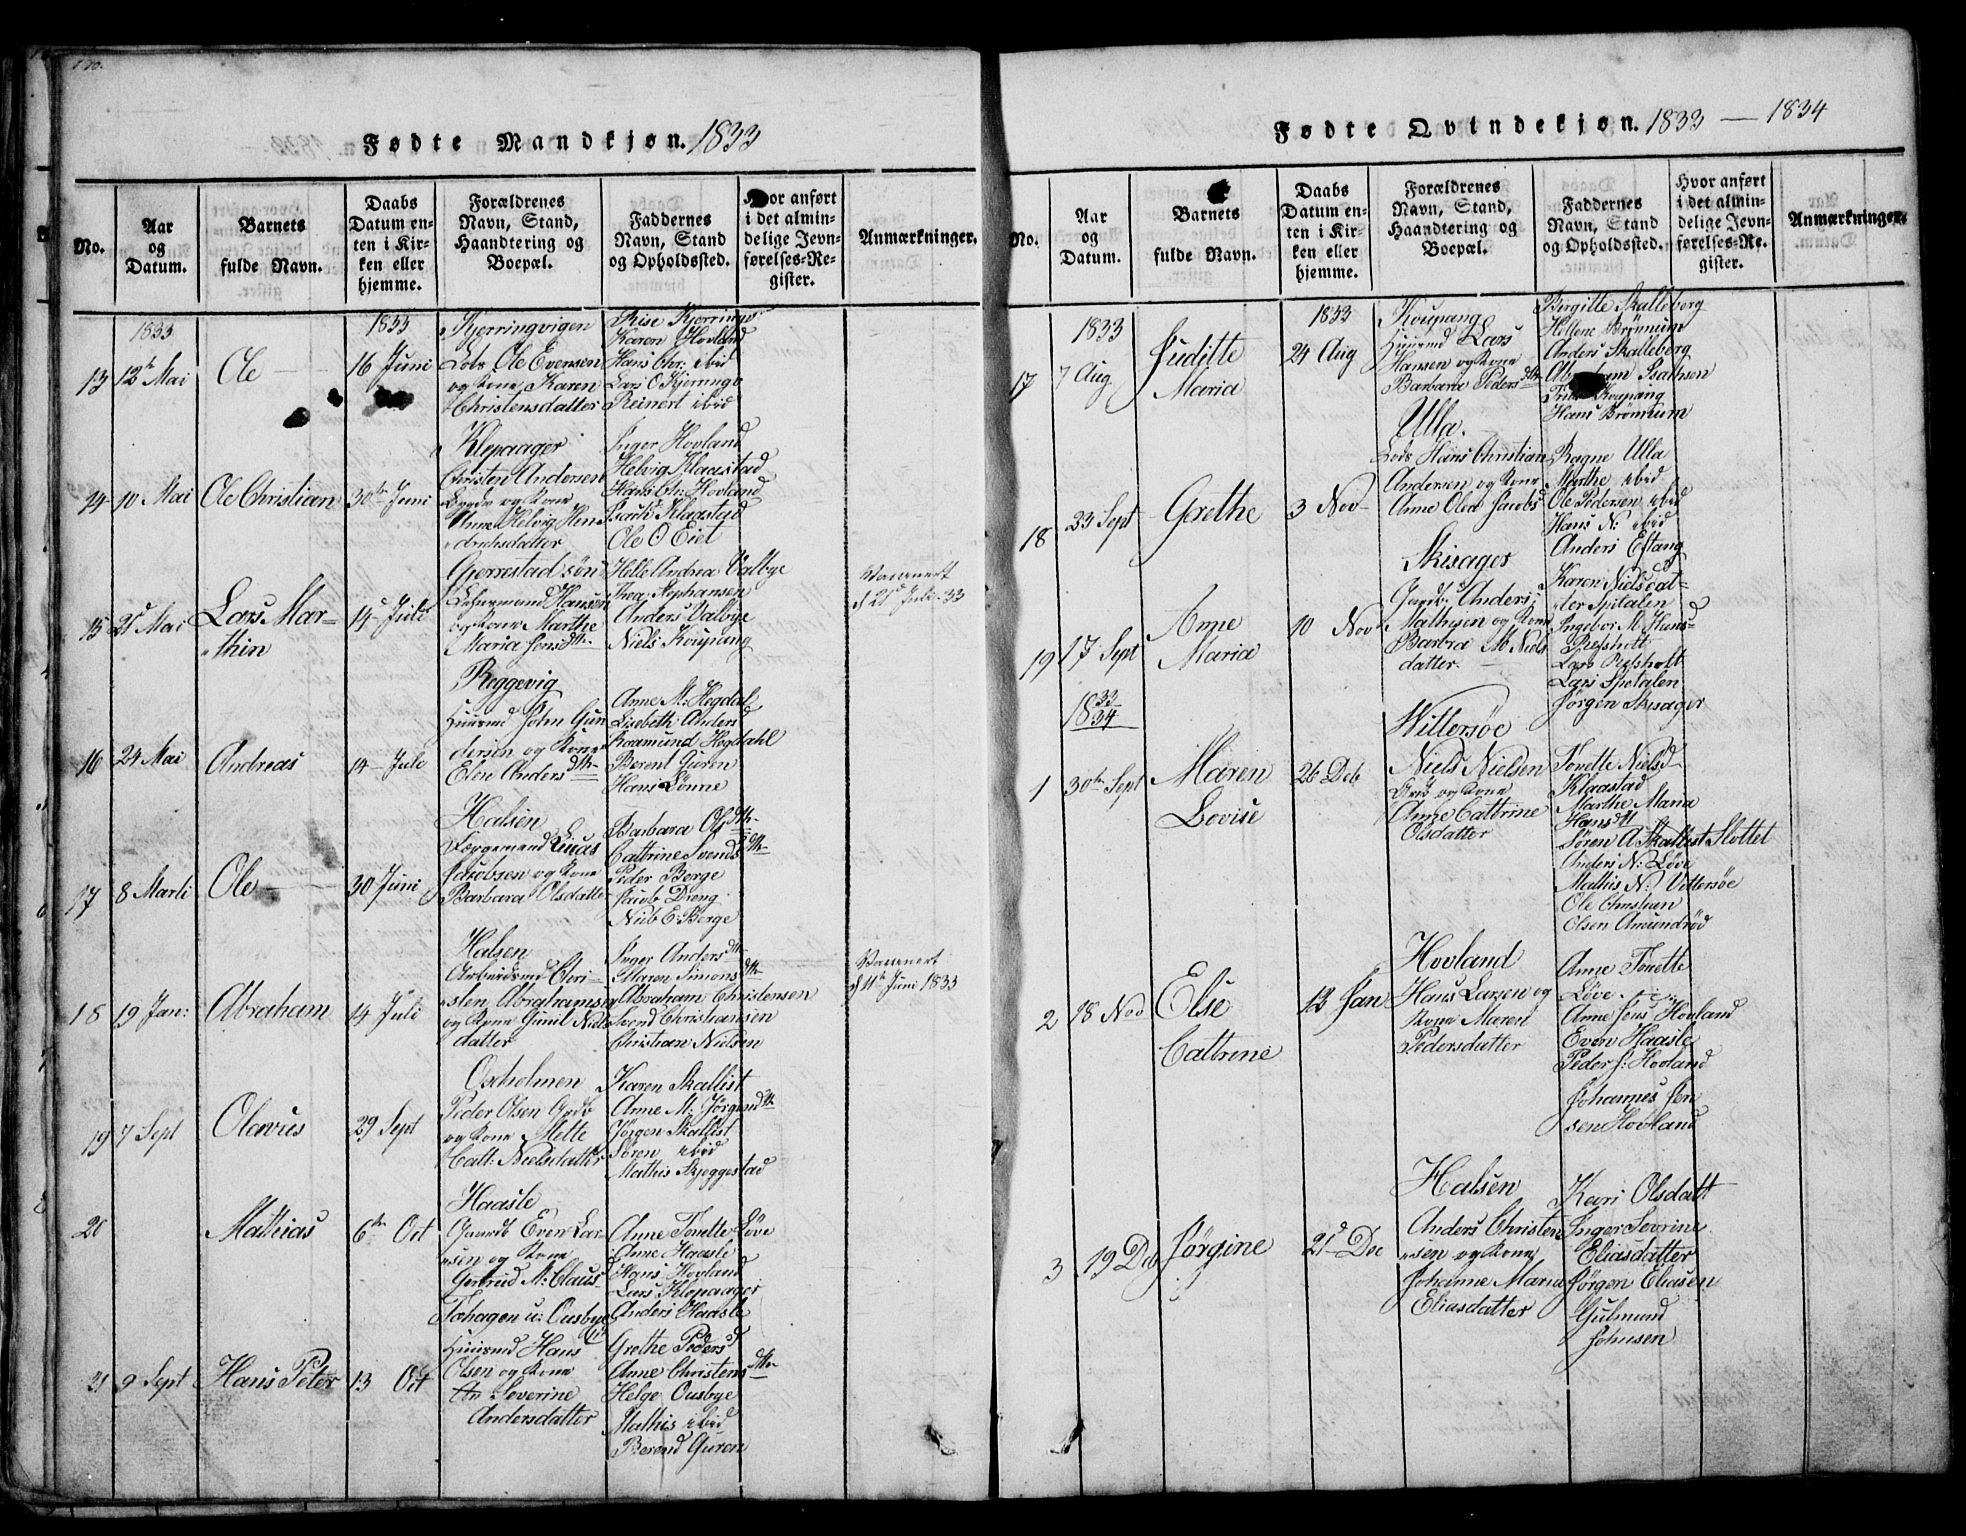 170.
Fødte Mandkjøn. 1833
No.
Aar
og
Datum.
Barnets
fulde Navn.
Daabs
Datum en-
ten i Kir-
ken eller
hjemme.
Forældrenes
Navn, Stand,
Haandtering og
Boepæl.
Faddernes
Navn, Stand
og Opholdssted.
Hvor anført
i det almin-
delige Jevn-
førelses-Re-
gister.
Anmærkninger.
1833
13 12te Mai
Ole
1833
16 Juni
Kjerringvigen
Lods Ole Evensen
og Kone Karen
Christensdatter
Rise Kjerringv
Karen Hovland
Hans Chr. ibid
Lars O Kjerringv
Reinert ibid
14 10 Mai
Ole Christian
30te Juni
Klepaager
Christen Andersen
og Kone
Anne Helvig Hen-
driksdatter
Inger Hovland
Helvig Klaastad
Hans Chr. Hovland
Isark Klaastad
Ole O Eiet
15 21d Mai
Lars Mar-
thin
14 Juli
Gjerrestad søn
Hansen
og Kone Marthe
Maria Jensdtr.
Helle Andrea Valbye
Thea Stephansen
Anders Valbye
Niels Koupang
Vaccinert
d 21d Juli 33
16 24 Mai
Andreas
14 Juli
Reggevig
Huusmd John Gun
dersen og Kone
Elen Andersdtr.
Anne M. Hegdal
Lisebeth Anders
Rosmund Hogdahl
Berent Guren
Hans Lønne
17 8 Marti
Ole
30 Juni
Halsen
Færgemand Lucas
Jacobsen og Kone
Barbara Olsdatter
Barbara Olsdtr.
Cathrine Svendsdtr.
Peder Berge
Jacob Dreng
Niels E. Berge
18 19 Jan:
Abraham
14 Juli
Halsen
Arbeidsmd Chri-
sten Abrahamsen
og Kone Gunil Niels
datter
Inger Andersdtr.
Maren Simonsdtr.
Abraham Christensen
Svend Christiansen
Christian Nielsen
Vaccinert
d 11te Juni 1833
19 7 Sept
Olavus
29 Sept
Oxholmen
Peder Olsen Grdb
og Kone Mette
Cath: Nielsdatter
Karen Skallist
Anne M. Jørgensdtr.
Jørgen Skallist
Søren ibid
Mathis Skjeggestad
20
Mathias
6te Oct
Haasle
Gaardb Even Lar-
sen og Kone
Gertrud M. Claus
Anne Tonette Løve
Anne Haasle
Hans Hovland
Lars Klepaager
Anders Haasle
21 9 Sept
Hans Peter
13 Oct
Tohagen u: Ousbye
Huusmd Hans
Olsen og Kone
An Severine
Andersdatter
Grethe Peders
Anne Christensdtr.
Helge Ousbye
Mathis ibid
Berend Guren
Fødte Qvindekjøn. 1833 — 1834
No.
Aar
og
Datum.
Barnets
fulde Navn.
Daabs
Datum en-
ten i Kir-
ken eller
hjemme.
Forældrenes
Navn, Stand,
Haandtering og
Boepæl.
Faddernes
Navn, Stand
og Opholdssted.
Hvor anført
i det almin-
delige Jevn-
førelses-Re-
gister.
Anmærkninger.
1833
17 7 Aug
Juditte
Maria
1833
24 Aug
Koupang
Huusmd Lars
Hansen og Kone
Barbara Pedersdtr.
Birgitte Skalleberg
Hellene Brønnum
Anders Skalleberg
Abraham Isachsen
Koupang
Hans Brønnum
18 23 Sept
Grethe
3 Nov
Ulla.
Lods Hans Christian
Andersen og Kone
Anne Olea Jacobsd
Ragne Ulla
Marthe ibid
Ole Pedersen ibid
Hans N: ibid
Anders Eftang
19 17 Sept
Anne
Maria
10 Nov
Skisager
Gaardb. Anders
Mathisen og Kone
Barbra M Niels
datter.
Karen Nielsdat-
ter Spitalen
Ingebor M Hans-
Refsholt
Lars Refsholt
Lars Spetalen
Jørgen Skisager
1833
34
1 30te Sept
Maren
Lovise
26 Deb
Wittersøe
Niels Nielsen
Grb og Kone
Anne Cathrine
Olsdatter
Tonette Nielsd
Klaastad
Marthe Maria
Hansdtr
Søren A Skallist Slottet
Anders N: Løve
Mathis N: Vittersøe
Ole Christian
Olsen Amundrød
2 18 Nov
Else
Cattrine
12 Jan
Hovland
Hans Larsen og
Kone Maren
Pedersdatter
Anne Tonette
Løve
Anne Jens Hovland
Even Haasle
Peder J: Hovland
Johannes Jen
sen Hovland
3 19 Deb
Jørgine
21d Dec
Halsen
Anders Christen
sen og Kone
Johanne Maria
Eliasdatter
Kari Olsdatt
Inger Sevrine
Eliasdatter
Jørgen Eliasen
Gulmund
Johnsen